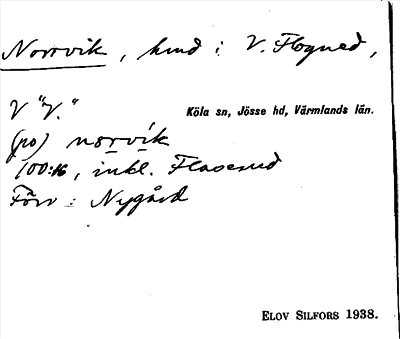 Norrvik, hmd i V. Flogned,
V "V."
Köla sn, Jösse hd, Värmlands län.
(po) norvik
100:16, inkl. Flaserud
Förv: Nygård
ELOV SILFORS 1938.